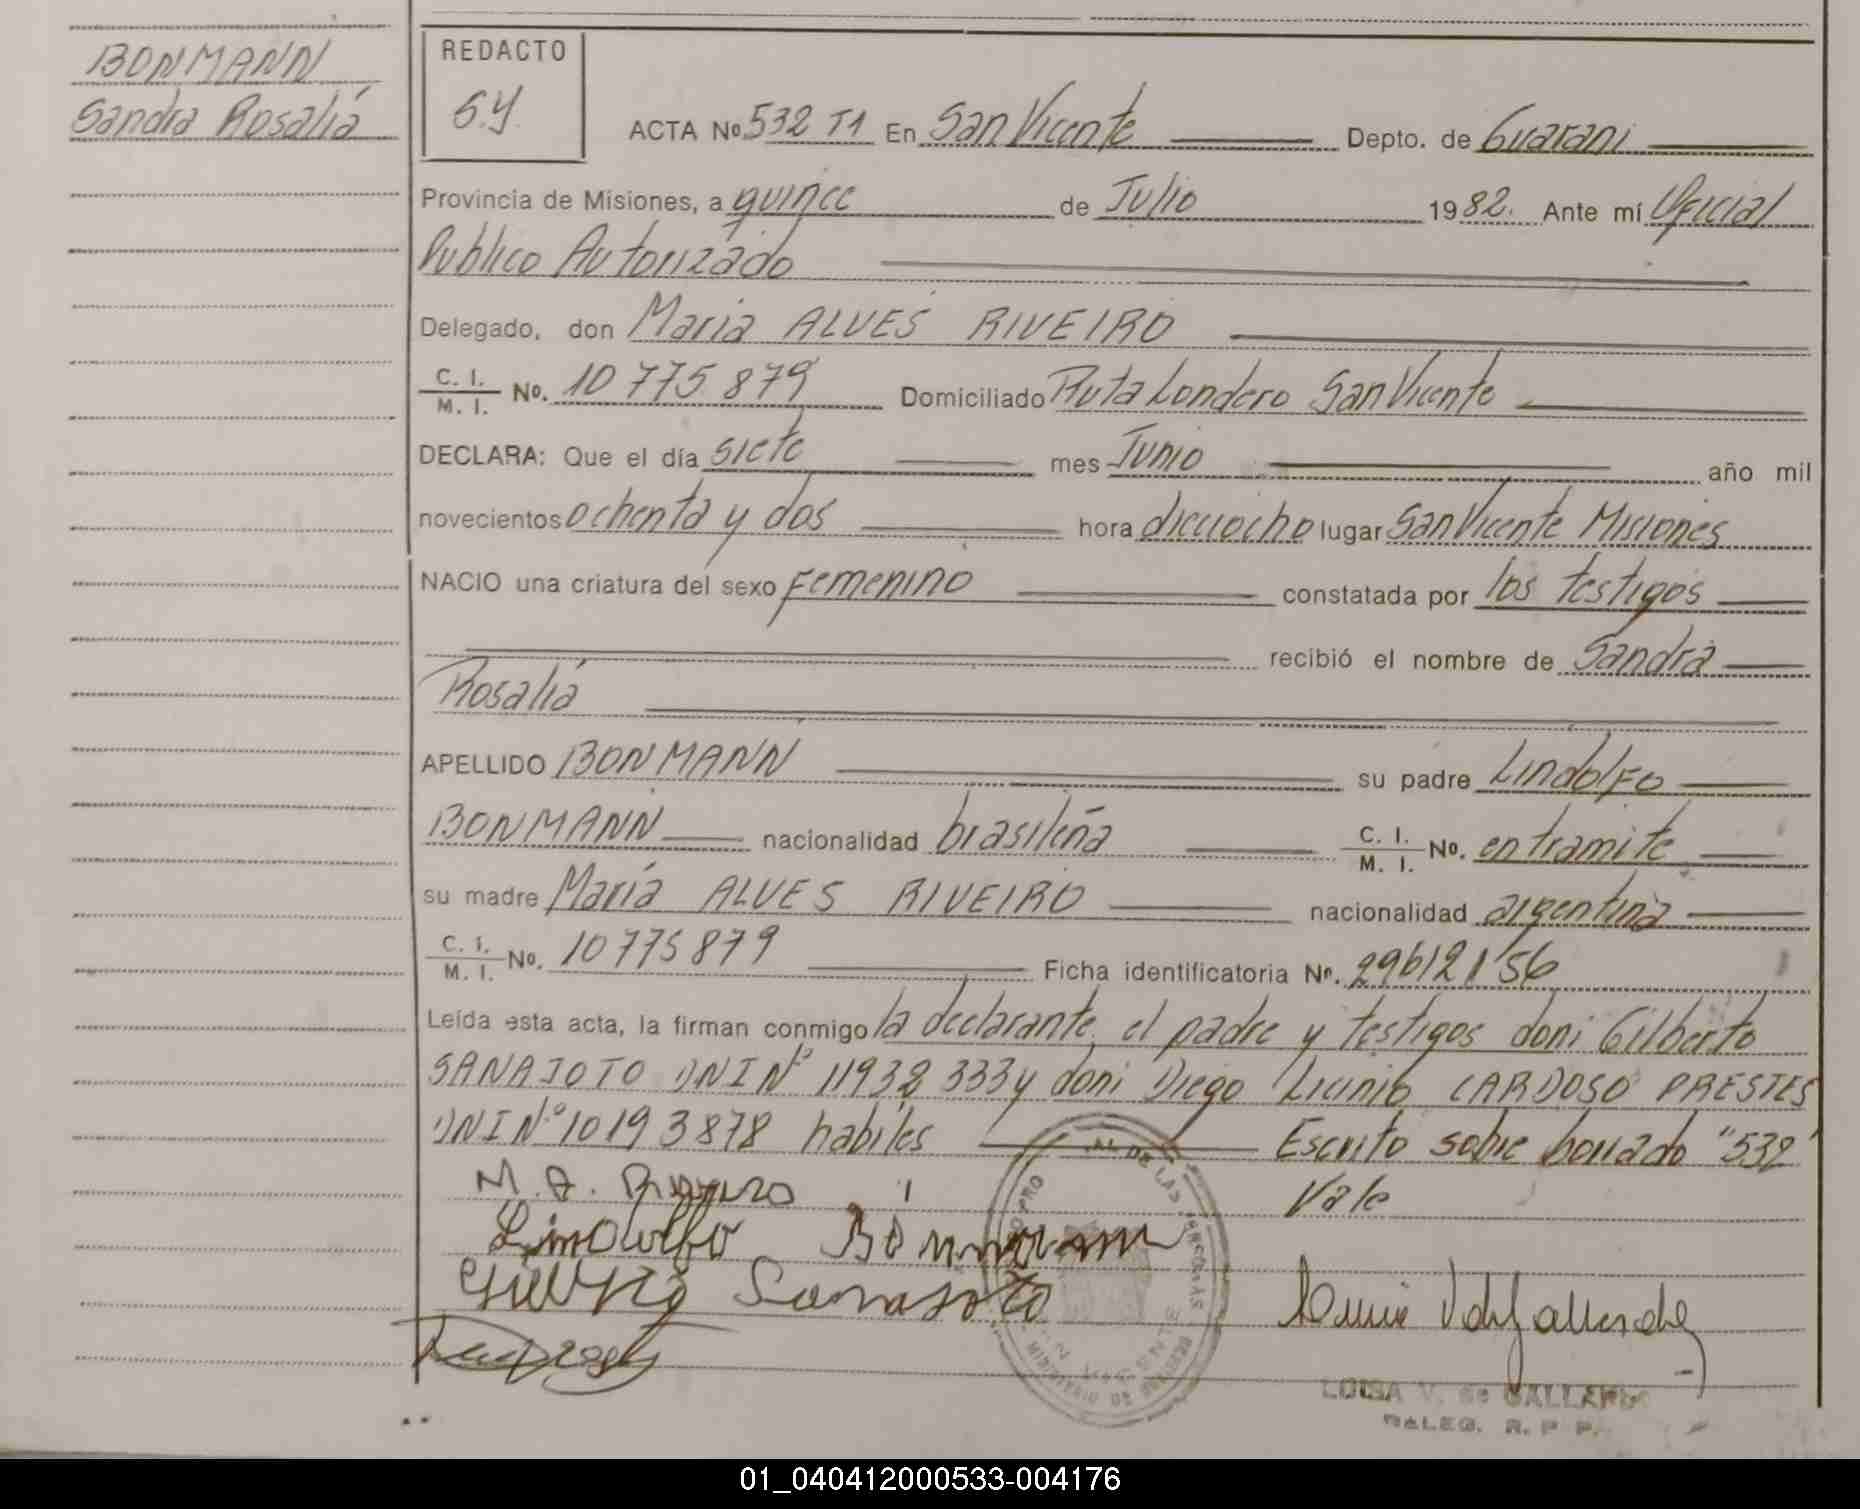 BONMANN
Sandra Rosalía
REDACTO
S.Y.
ACTA No. 532 T1 En San Vicente Depto. de Guaraní
Provincia de Misiones, a quince de Julio 1982. Ante mí Oficial
Publico Autorizado
Delegado, don Maria ALVES RIVEIRO
C. I. / M. I. No. 10 775 879 Domiciliado Ruta Londero San Vicente
DECLARA: Que el día siete mes Junio año mil
novecientos ochenta y dos hora dieciocho lugar San Vicente Misiones
NACIO una criatura del sexo Femenino constatada por los testigos
recibió el nombre de Sandra
Rosalía
APELLIDO BONMANN su padre Lindolfo
BONMANN nacionalidad brasileña C. I. / M. I. No. en tramite
su madre María ALVES RIVEIRO nacionalidad argentina
C. I. / M. I. No. 10775879 Ficha identificatoria No. 29612156
Leída esta acta, la firman conmigo la declarante, el padre y testigos don: Gilberto
SANAJOTO DNI Nº 11932 333 y don: Diego Licinio CARDOSO PRESTES
DNI Nº 10193878 habiles Escrito sobre borrado "532"
Vale
M. A.
Lindolfo Bonmann
Sanasoto
LUISA V. de GALLARDO
DELEG. R. P. P.
01_040412000533-004176